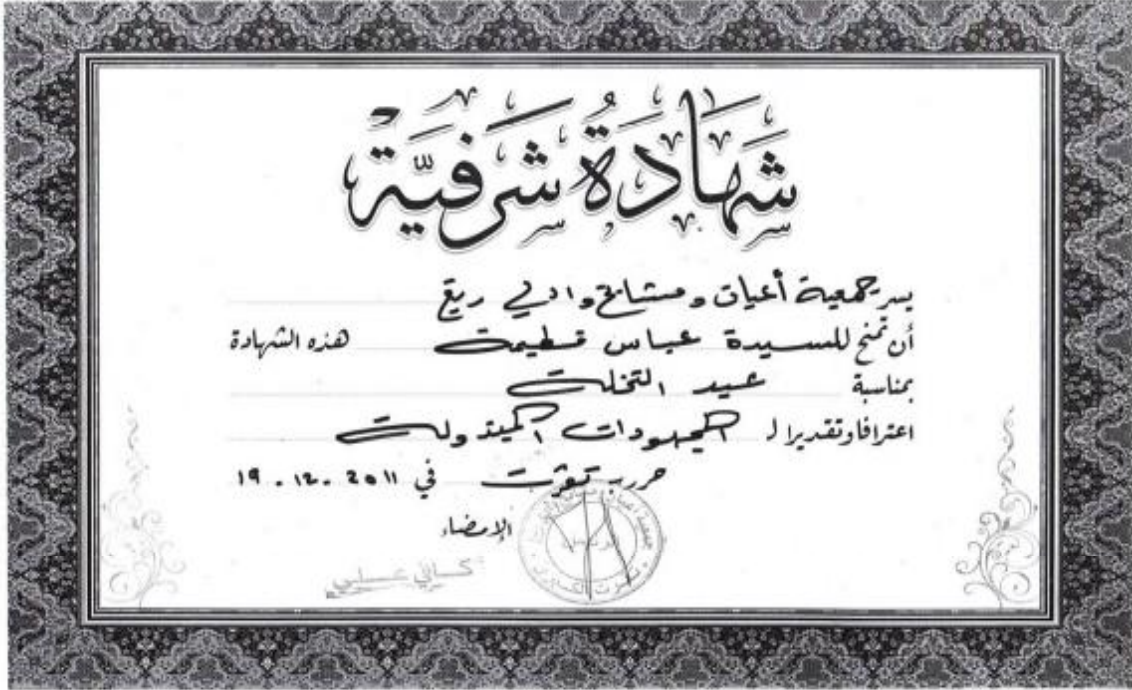 شَهَادَةُ شَرَفِيَّة
يسر جمعية أعيان و مشايخ وادي ريغ
أن تمنح للسيدة عباس فطيمة هذه الشهادة
بمناسبة عيد النخلة
اعترافا وتقديرا لـ المجهودات المبذولة
حرر بـ تقرت في 19.12.2011
الإمضاء
جمعية أعيان